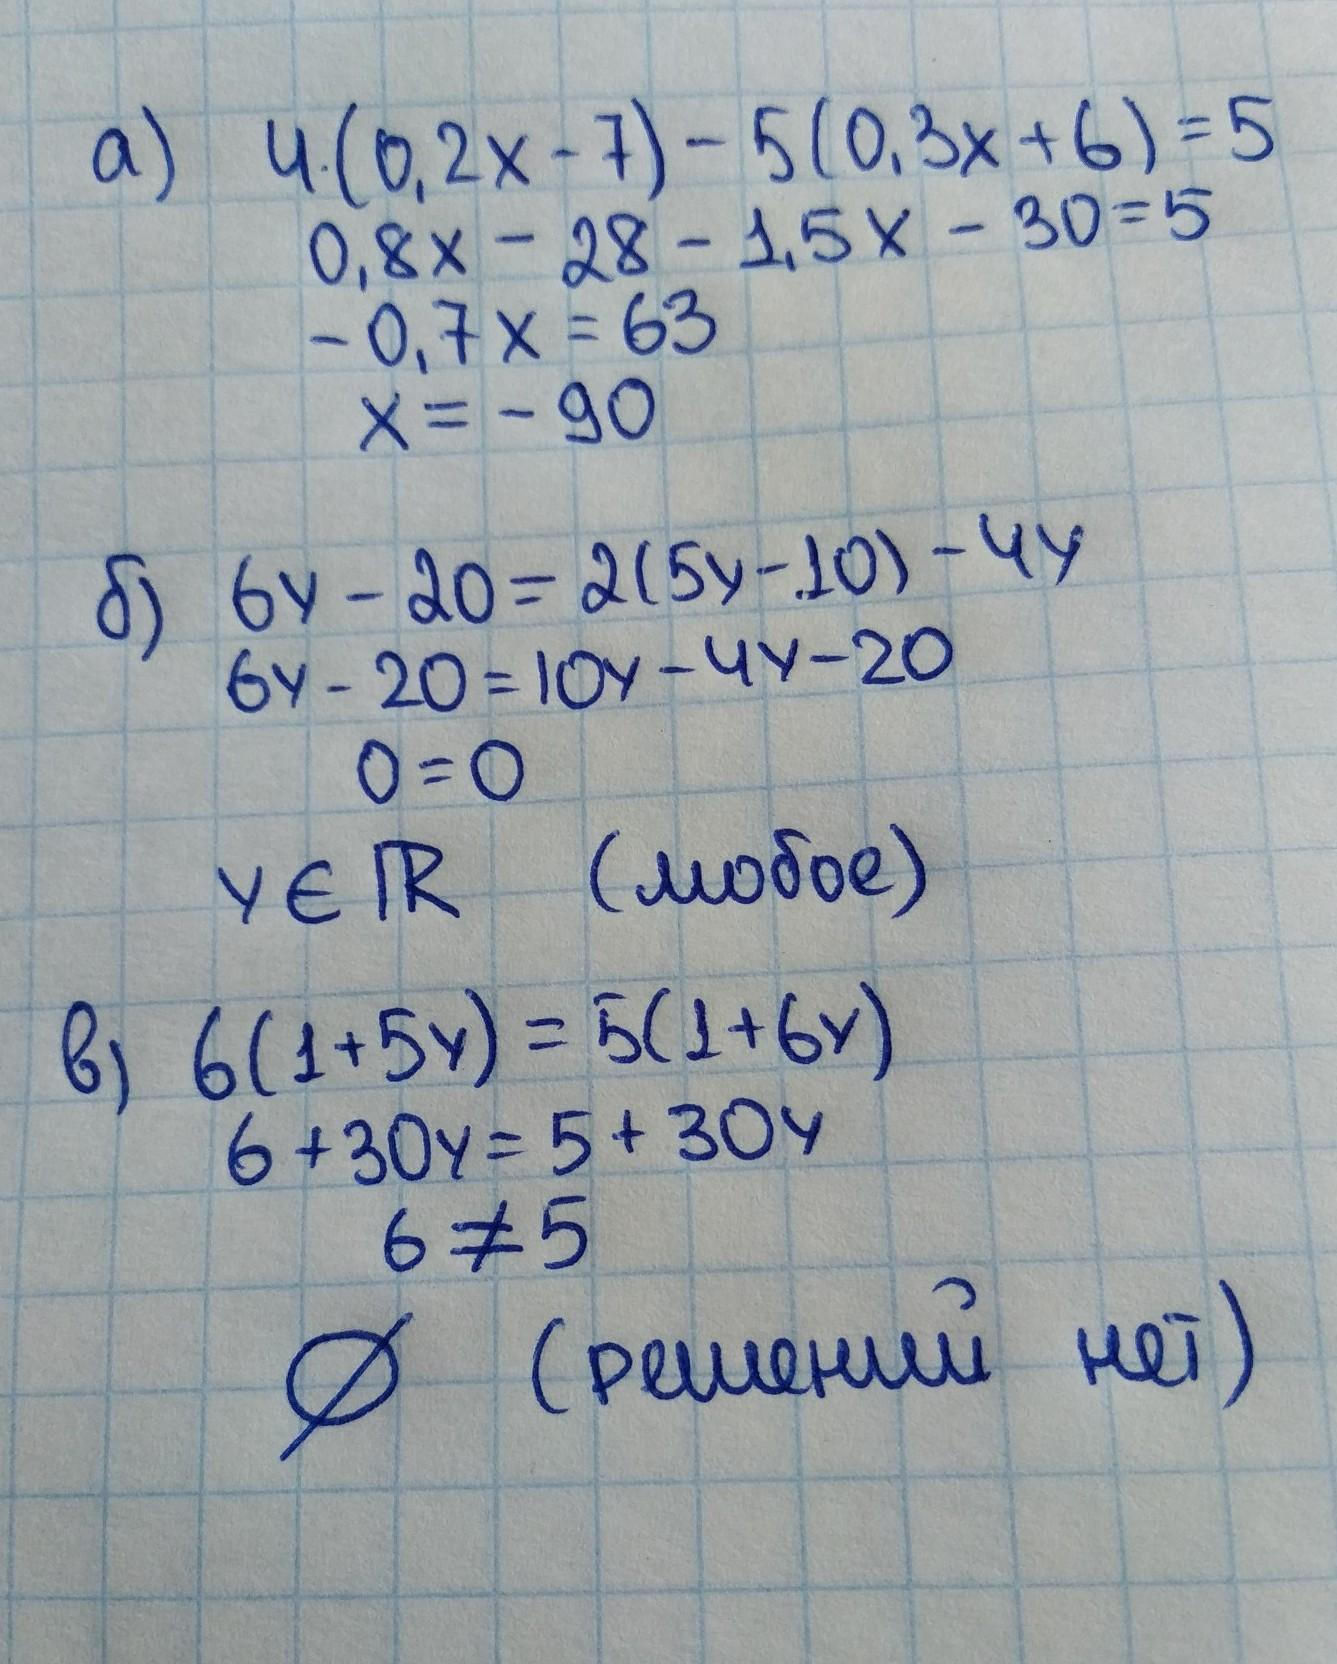 а) 4·(0,2x - 7) - 5(0,3x + 6) = 5
0,8x - 28 - 1,5x - 30 = 5
- 0,7x = 63
x = - 90
б) 6y - 20 = 2(5y - 10) - 4y
6y - 20 = 10y - 4y - 20
0 = 0
y ∈ ℝ (любое)
в) 6(1 + 5y) = 5(1 + 6y)
6 + 30y = 5 + 30y
6 ≠ 5
∅ (решений нет)